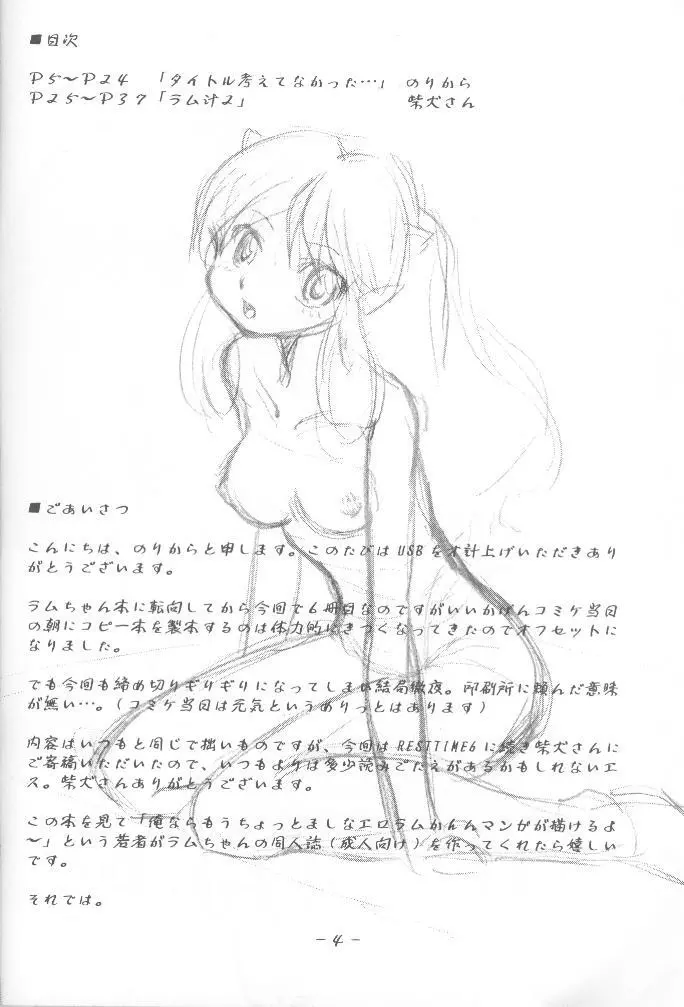 ■目次
P5～P24 「タイトル考えてなかった…」 のりから
P25～P37 「ラム汁2」 柴犬さん
■ごあいさつ
こんにちは、のりからと申します。このたびはUSBをオ計上げいただきあり
がとうございます。
ラムちゃん本に転向してから今回で6冊目なのですがいいかげんコミケ当日
の朝にコピー本を製本するのは体力的にきつくなってきたのでオフセットに
なりました。
でも今回も締め切りぎりぎりになってしまい結局徹夜。印刷所に頼んだ意味
が無い…。(コミケ当日は元気というめりっとはあります)
内容はいつもと同じで拙いものですが、今回はRESTTIME6に続き柴犬さんに
ご寄稿いただいたので、いつもよりは多少読みごたえがあるかもしれないエ
ス。柴犬さんありがとうございます。
この本を見て「俺ならもうちょっとましなエロラムかんんマンガが描けるよ
～」という若者がラムちゃんの同人誌(成人向け)を作ってくれたら嬉しい
です。
それでは。
- 4 -